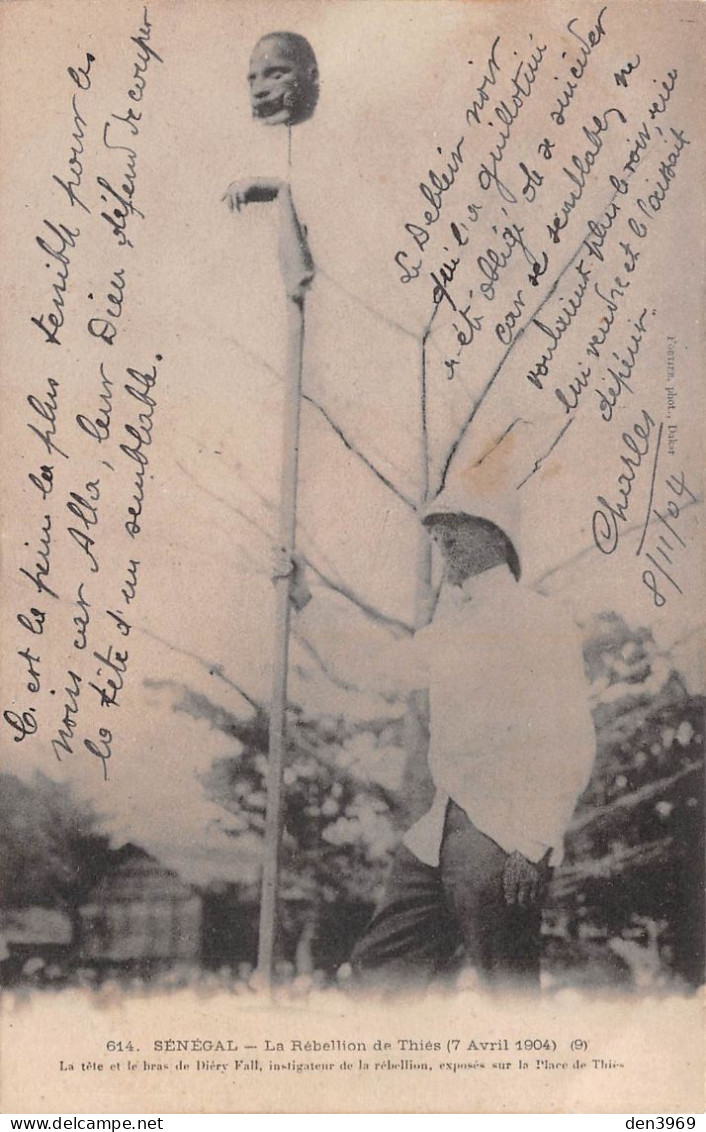 C'est la peine la plus terrible pour les
noirs car Alla, leur Dieu défend de couper
la tête d'un semblable.
Le Deblein noir
qui l'a guillotiné
a été obligé de se suicider
car ses semblables ne
voulaient plus le voir rien
lui vendre et le laissait
dépérir.
Charles
8/11/04
FORTIER, phot., Dakar
614. SÉNÉGAL — La Rébellion de Thiés (7 Avril 1904) (9)
La tête et le bras de Diéry Fall, instigateur de la rébellion, exposés sur la Place de Thiés
den3969